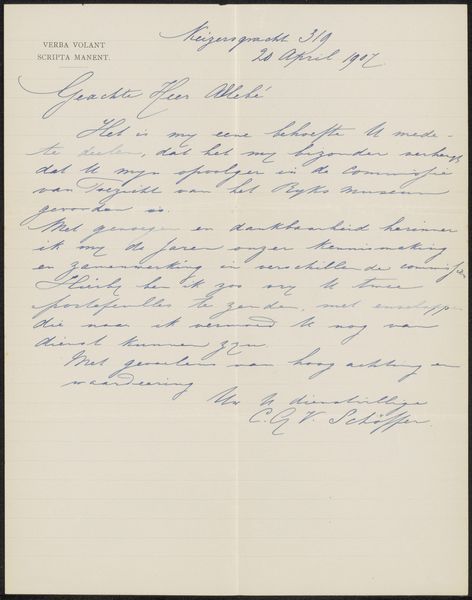 VERBA VOLANT
SCRIPTA MANENT.
Keizersgracht 319
20 April 1907.
Geachte Heer Allebé
Het is my eene behoefte U mede-
te deelen, dat het my byzonder verheugt
dat U myn opvolger in de Commissie
van Toezicht van het Ryks Museum
geworden is.
Met genoegen en dankbaarheid herinner
ik my de jaren onzer kennismaking
en zamenwerking in verschillende commissies
Hierby ben ik zoo vry U twee
portefeuilles te zenden, met enveloppen
die naar ik vermoed U nog van
dienst kunnen zyn.
Met gevoelens van hoogachting en
waardeering
Uw dienstwillige
C. G. V. Schöffer.